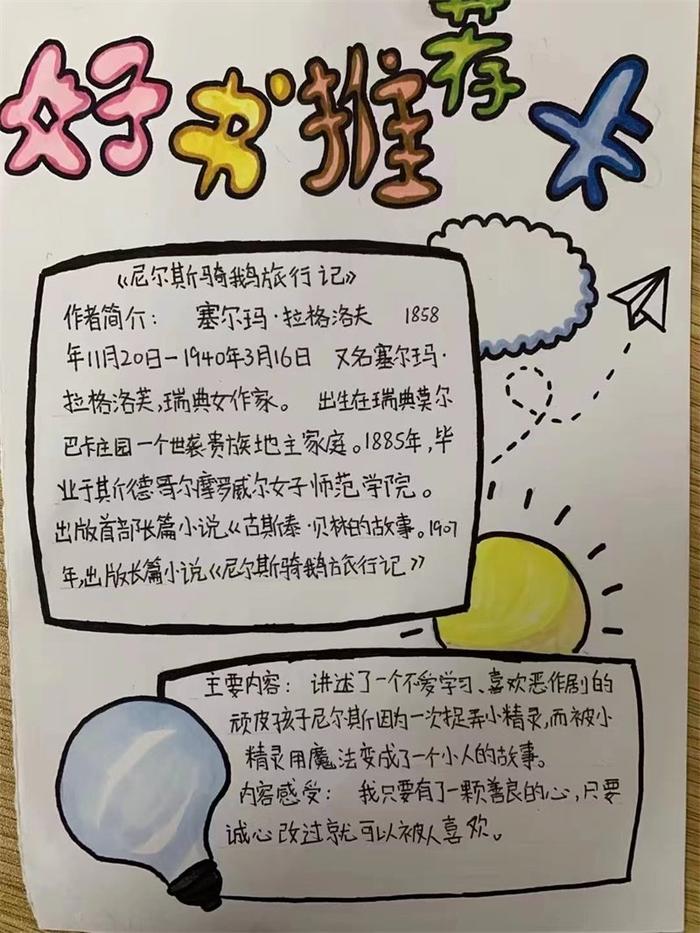 好书推荐卡
《尼尔斯骑鹅旅行记》
作者简介： 塞尔玛·拉格洛夫 1858
年11月20日—1940年3月16日 又名塞尔玛·
拉格洛芙,瑞典女作家。 出生在瑞典莫尔
巴卡庄园一个世袭贵族地主家庭。1885年,毕
业于斯德哥尔摩罗威尔女子师范学院。
出版首部长篇小说《古斯泰·贝林的故事。1907
年,出版长篇小说《尼尔斯骑鹅旅行记》
主要内容： 讲述了一个不爱学习、喜欢恶作剧的
顽皮孩子尼尔斯因为一次捉弄小精灵,而被小
精灵用魔法变成了一个小人的故事。
内容感受： 我只要有了一颗善良的心,只要
诚心改过就可以被人喜欢。